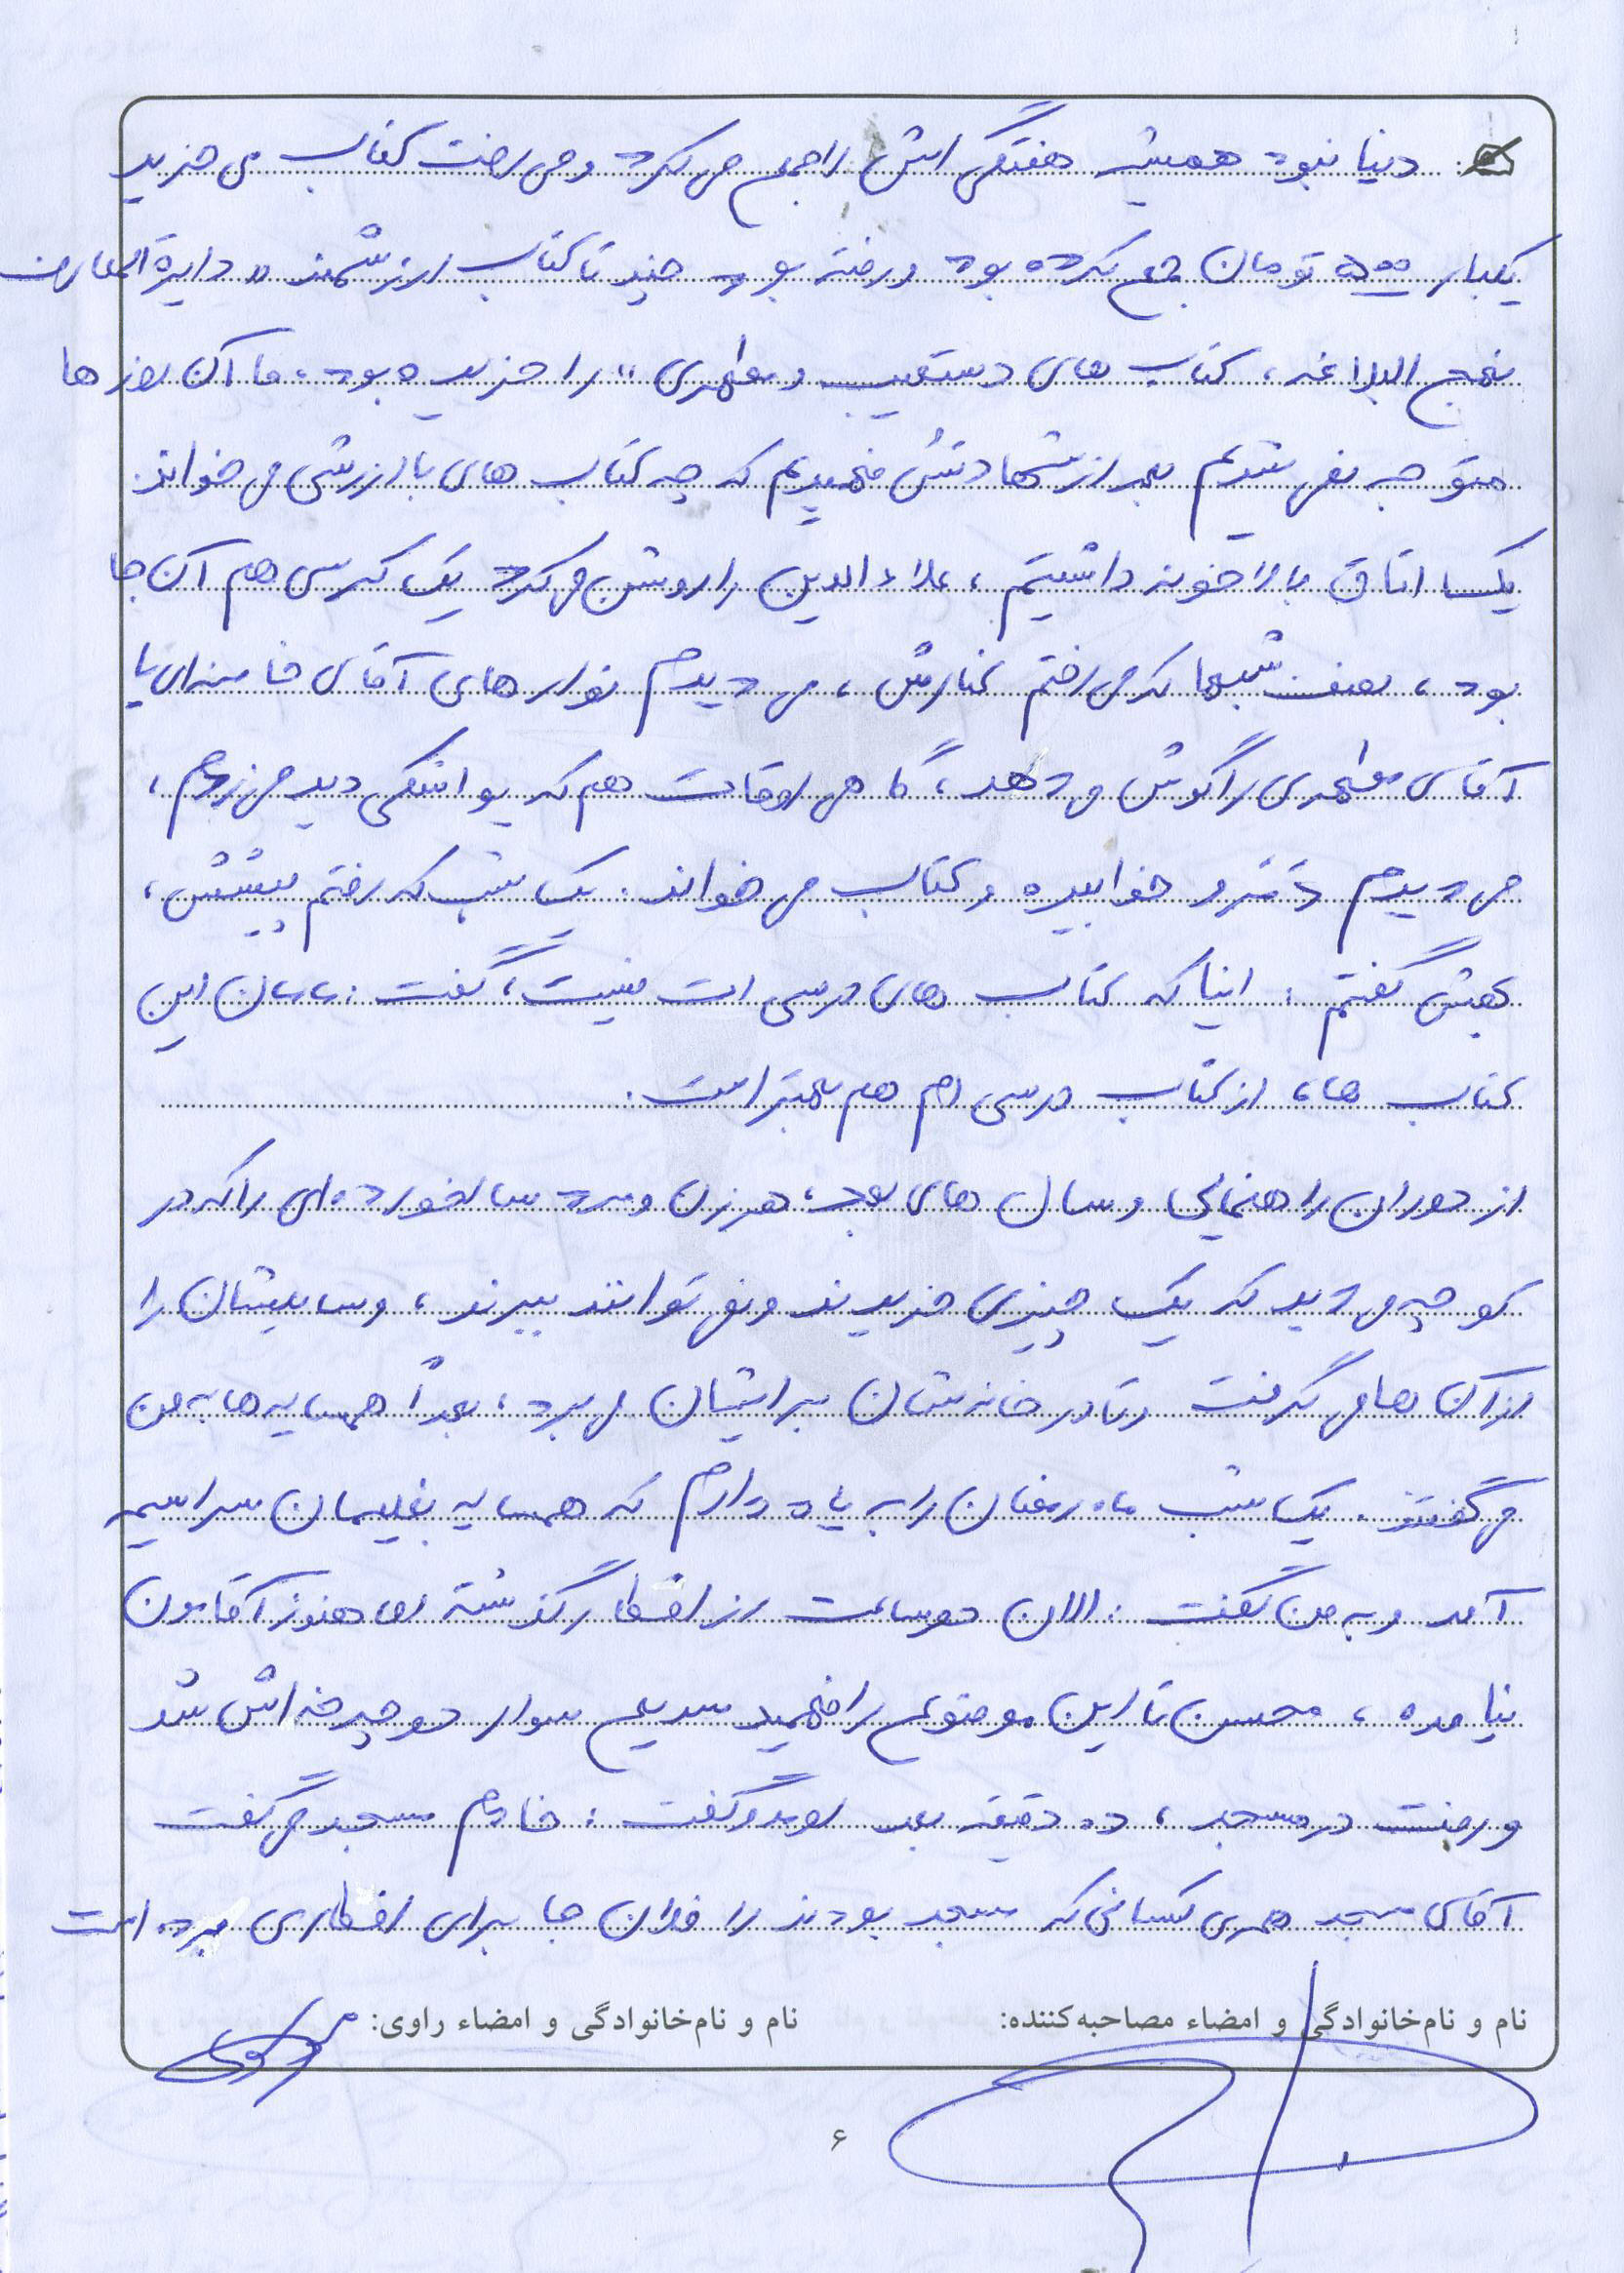 دنیا نبود همیشه هفتگی اش را جمع می کرد و می رفت کتاب می خرید
یکبار ۵۰۰ تومان جمع کرده بود و رفته بود چند تا کتاب ارزشمند «دایرة المعارف
نهج البلاغه، کتاب های دستغیب و مطهری» را خریده بود. ما آن روزها
متوجه نمی شدیم بعد از شهادتش فهمیدیم که چه کتاب های با ارزشی می خواند.
یک اتاق بالاخونه داشتیم، علاءالدین را روشن می کرد یک کرسی هم آن جا
بود، بعضی شبها که می رفتم کنارش، می دیدم نوارهای آقای خامنه ای یا
آقای مطهری را گوش می دهد، گاهی اوقات هم که یواشکی دید می زدم،
می دیدم دَمَر و خوابیده و کتاب می خواند. یک شب که رفتم پیشش،
بهش گفتم: اینا که کتاب های درسی ات نیست، گفت: مامان این
کتاب ها، از کتاب درسی ام هم بهتر است.
از دوران راهنمایی و سال های بعد، هر زن و مرد سالخورده ای را که در
کوچه می دید که یک چیزی خریدند و نمی توانند ببرند، وسایلشان را
از آن ها می گرفت و تا در خانه شان برایشان می برد، بعداً همسایه ها به من
می گفتند. یک شب ماه رمضان را به یاد دارم که همسایه بغلیمان سراسیمه
آمد و به من گفت: الان دو ساعت از افطار گذشته اما هنوز آقامون
نیامده، محسن تا این موضوع را فهمید سریع سوار دوچرخه اش شد
و رفت در مسجد، ده دقیقه بعد اومد و گفت: خادم مسجد می گفت
آقای مسجد همه ی کسانی که مسجد بودند را فلان جا برای افطاری برده است
نام و نام‌خانوادگی و امضاء مصاحبه‌کننده: نام و نام‌خانوادگی و امضاء راوی:
۶